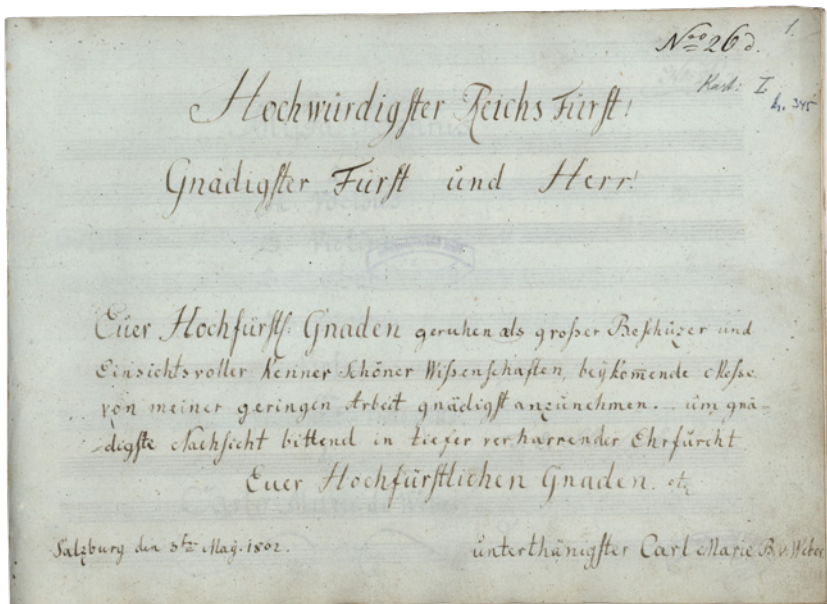 Nro 26 d. 1.
Kast: I
Hochwürdigster Reichs Fürst!
Gnädigster Fürst und Herr!
Euer Hochfürstl: Gnaden geruhen als großer Beschüzer und
Einsichtsvoller Kenner Schöner Wißenschaften, beÿkom̄ende Messe
von meiner geringen Arbeit gnädigst anzunehmen. – um gnä-
-digste Nachsicht bittend in tiefer verharrender Ehrfurcht
Euer Hochfürstlichen Gnaden.
Salzburg den 3ten Maÿ. 1802.
unterthänigster Carl Marie B. v. Weber